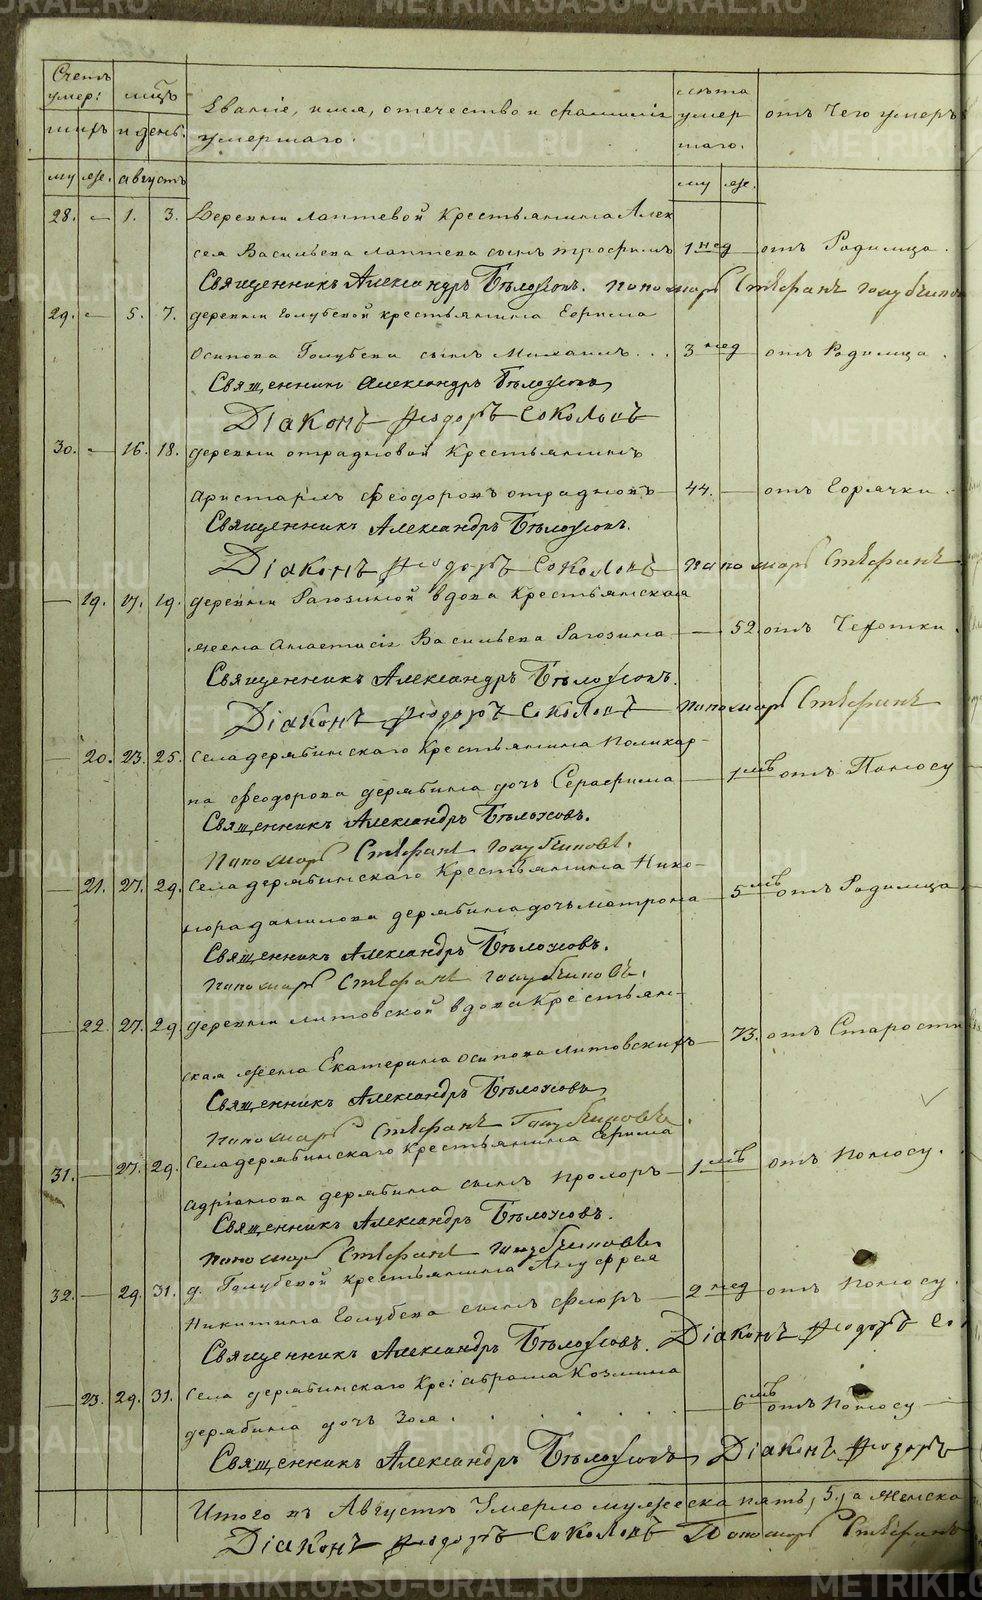 Счетъ умер: шихъ
мцъ и день.
Званіе, имя, отечество и фамилія умершаго.
лѣта умер шаго.
отъ Чего умеръ
му же. августъ му же.
28. — 1. 3. Деревни Лаптевой Крестьянина Алек
сея Васильева Лаптева сынъ Трофимъ 1 нед отъ Родимца.
Священникъ Александръ Бѣлоусовъ. Пономарь Стефанъ Голубчиков
29. — 5. 7. деревни Голубевой крестьянина Ефрима
Осипова Голубева сынъ Михаилъ . . . 3 нед отъ Родимца.
Священникъ Александръ Бѣлоусовъ
Діаконъ Феодоръ Соколовъ
30. — 16. 18. деревни отрадновой Крестьянинъ
Аристархъ Феодоровъ отрадновъ — 44. — отъ Горячки.
Священникъ Александръ Бѣлоусовъ.
Діаконъ Феодоръ Соколовъ Пономарь Стефанъ
— 19. 17. 19. деревни Рагозиной вдова Крестьянская
жена Анастасія Васильева Рагозина — 52. отъ Чехотки.
Священникъ Александръ Бѣлоусовъ.
Діаконъ Феодоръ Соколовъ Пономарь Стефанъ
— 20. 23. 25. Села дерябинскаго Крестьянина Поликар-
па Феодорова дерябина дочь Серафима — 1 мѣ отъ Поносу
Священникъ Александръ Бѣлоусовъ.
Пономарь Стефанъ Голубчиковъ.
— 21. 27. 29. Села дерябинскаго Крестьянина Нико-
нора данилова дерябина дочь Матрона — 5 мѣ отъ Родимца
Священникъ Александръ Бѣлоусовъ.
Пономарь Стефанъ Голубчиковъ.
— 22. 27. 29. деревни Литовской вдова Крестьян-
ская жена Екатерина Осипова Литовскихъ — 73. отъ Старости
Священникъ Александръ Бѣлоусовъ
Пономарь Стефанъ Голубчиковъ.
31. — 27. 29. Села дерябинскаго Крестьянина Ефима
Адріанова дерябина сынъ Фролоръ — 1 мѣ отъ Поносу.
Священникъ Александръ Бѣлоусовъ.
Пономарь Стефанъ Голубчиковъ
32. — 29. 31. д. Голубевой крестьянина Ануфрея
Никитина Голубева сынъ Флоръ — 2 нед отъ Поносу.
Священникъ Александръ Бѣлоусовъ. Діаконъ Феодоръ Со
— 23. 29. 31. Села дерябинскаго Кре: Абрама Козмина
дерябина дочь Зоя . . . . . — 6 мѣ отъ Поносу
Священникъ Александръ Бѣлоусовъ Діаконъ Феодоръ
Итого въ Августѣ Умерло мужеска пять, 5. а женска
Діаконъ Феодоръ Соколовъ Пономарь Стефанъ
METRIKI.GASO-URAL.RU